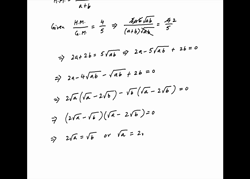 a+b
Given H.M. / G.M. = 4/5 ⇒ 2√ab / (a+b)√ab = 2/5
⇒ 2a+2b = 5√ab ⇒ 2a-5√ab + 2b = 0
⇒ 2a-4√ab - √ab + 2b = 0
⇒ 2√a(√a - 2√b) - √b(√a - 2√b) = 0
⇒ (2√a - √b)(√a - 2√b) = 0
⇒ 2√a = √b or √a = 2